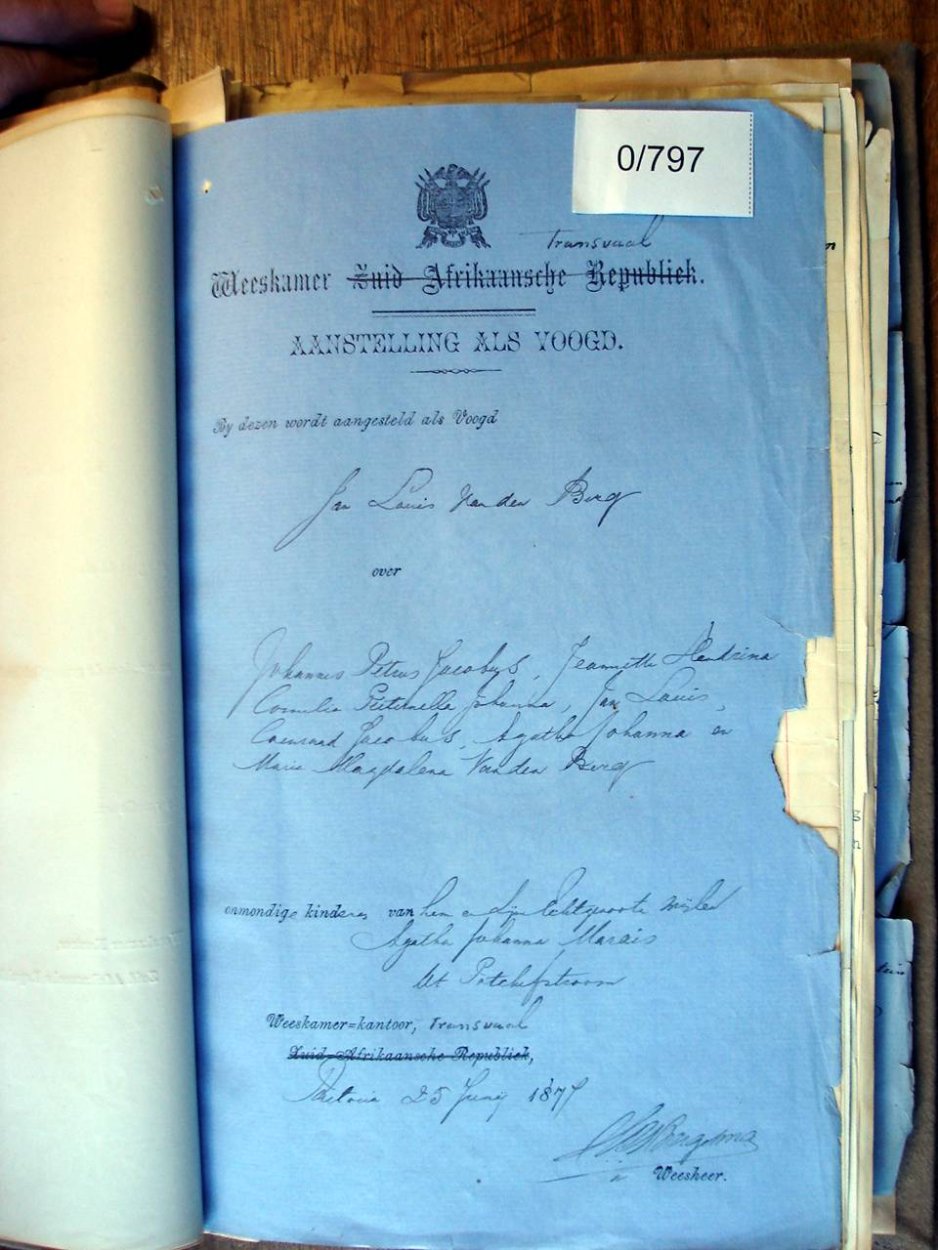 0/797
Transvaal
Weeskamer Zuid Afrikaansche Republiek.
AANSTELLING ALS VOOGD.
By dezen wordt aangesteld als Voogd
Jan Louis Van den Berg
over
Johannes Petrus Jacobus, Jeannette Hendrina
Cornelia Pieternella Johanna, Jan Louis,
Coenraad Jacobus, Agatha Johanna en
Maria Magdalena Van den Berg
onmondige kinderen van hem en zijn Echtgenoote wijlen
Agatha Johanna Marais
Uit Potchefstroom
Weeskamer=kantoor, Transvaal
Zuid-Afrikaansche Republiek,
Pretoria 25 Junij 1877
Weesheer.